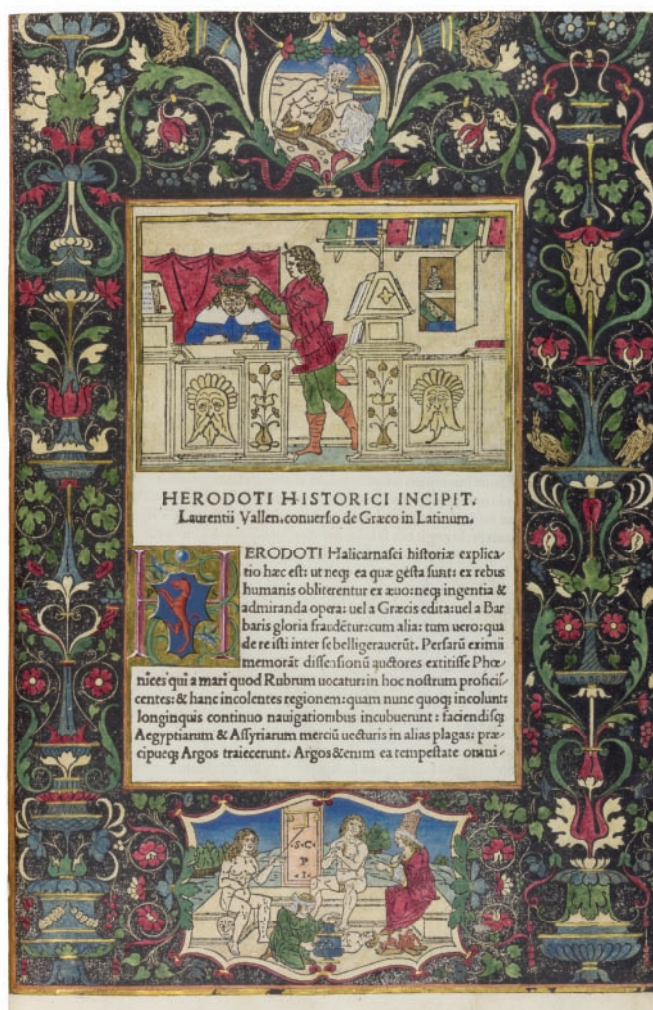 ·S·C·
P
·I·
HERODOTI HISTORICI INCIPIT.
Laurentii Vallen. conuersio de Græco in Latinum.
HERODOTI Halicarnasei historiæ explica⸗
tio hæc est: ut neqꝫ ea quæ gesta sunt: ex rebus
humanis obliterentur ex æuo: neqꝫ ingentia &
admiranda opera: uel a Græcis edita: uel a Bar
baris gloria fraudētur: cum alia: tum uero: qua
de re isti inter se belligerauerūt. Persarū eximii
memorāt dissensionū auctores extitisse Phœ⸗
nices: qui a mari quod Rubrum uocatur: in hoc nostrum proficis⸗
centes: & hanc incolentes regionem: quam nunc quoqꝫ incolunt:
longinquis continuo nauigationibus incubuerunt: faciendisqꝫ
Aegyptiarum & Assyriarum merciū uecturis in alias plagas: præ⸗
cipueqꝫ Argos traiecerunt. Argos &enim ea tempestate omni⸗